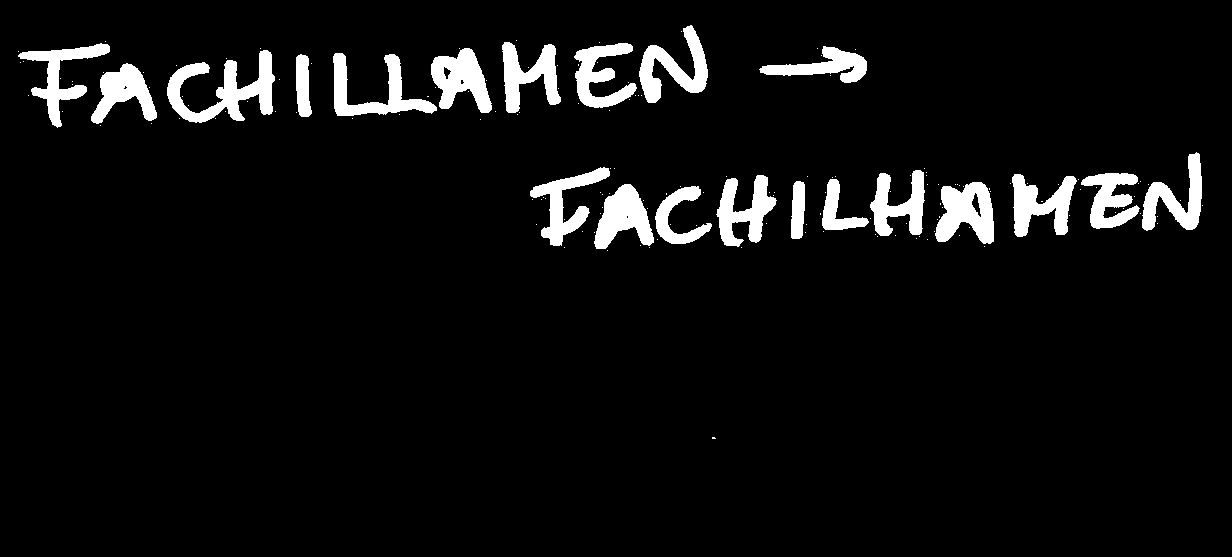 FACHILLAMEN →
FACHILHAMEN